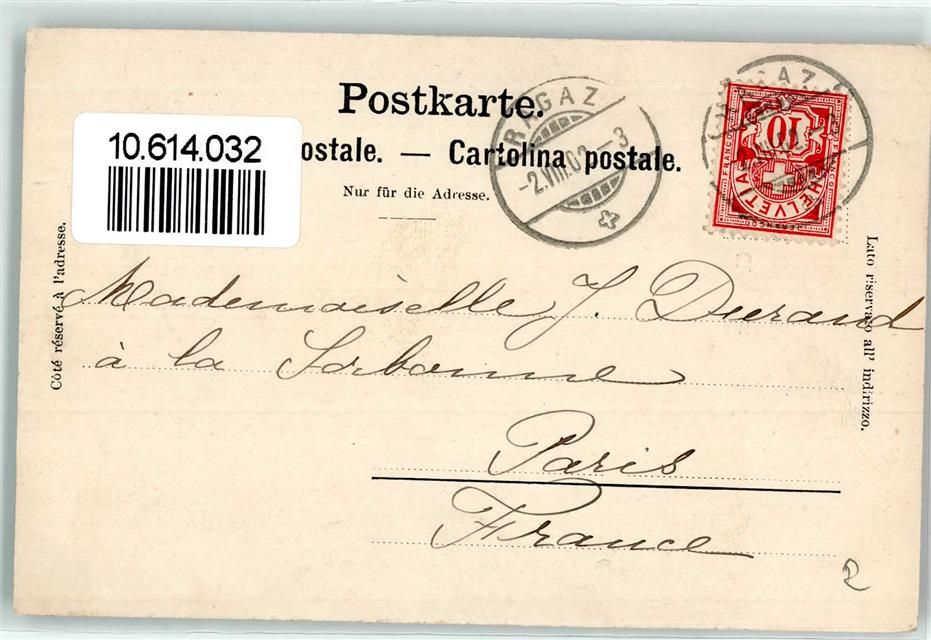 Postkarte.
10.614.032
ostale. — Cartolina postale.
Nur für die Adresse.
RAGAZ
-2.VIII.02.-3
RAGAZ
10
HELVETIA
FRANCO
Côté réservé à l'adresse.
Lato riservato all' indirizzo.
Mademoiselle J. Durand
à la Sorbonne
Paris
France
2